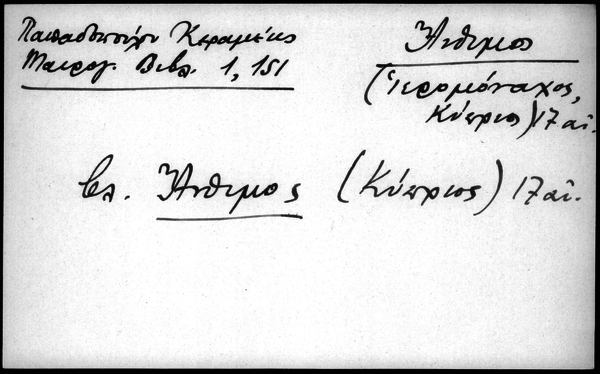 Παπαδοπούλου Κεραμέως
Μαυρογ. Βιβλ. 1, 151
Ἄνθιμος
(Ἱερομόναχος,
Κύπριος) 17 αἰ.
βλ. Ἄνθιμος (Κύπριος) 17 αἰ.